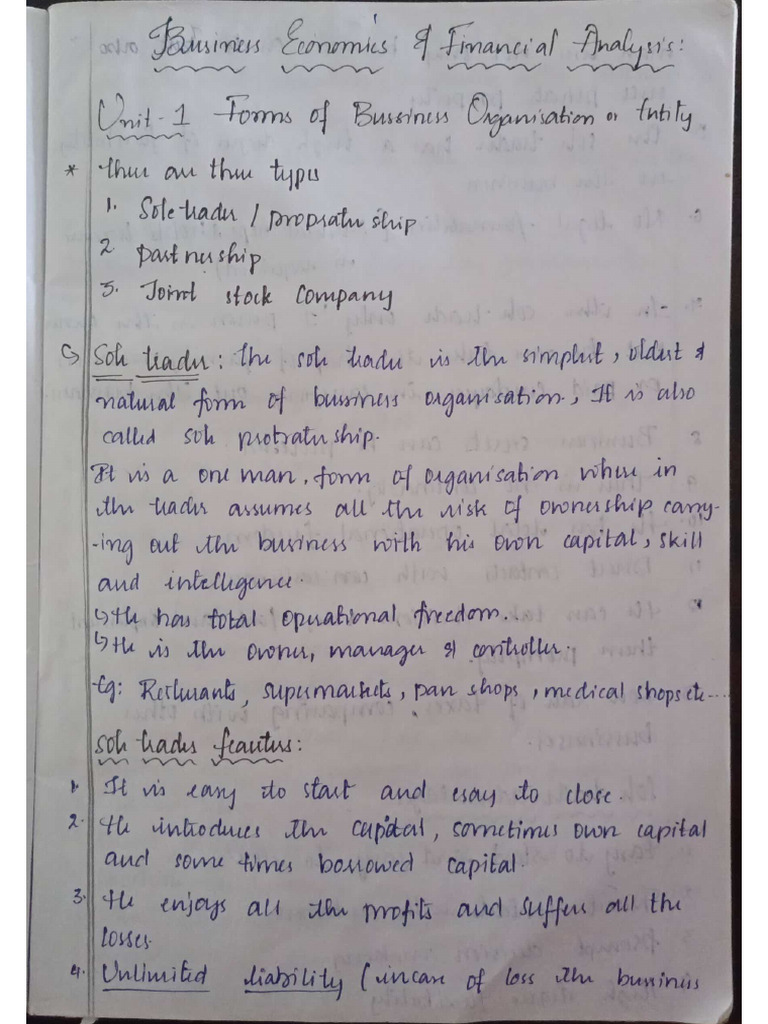 Business Economics & Financial Analysis:
Unit-1 Forms of Bussiness Organisation or Entity
* there are three types
1. Sole trader / propratership
2 partnership
3. Joint stock company
Sole trader: the sole trader is the simplest, oldest &
natural form of bussiness organisation, It is also
called sole protratership.
It is a one man, form of organisation where in
the trader assumes all the risk of ownership carry-
-ing out the business with his own capital, skill
and intelligence.
↳ He has total operational freedom..
↳ He is the owner, manager & controller.
Eg: Resturants, supermarkets, pan shops, medical shops etc....
Sole trader feautures:
1. It is easy to start and esay to close.
2. He introduces the capital, sometimes own capital
and some times borrowed capital.
3. He enjoys all the profits and suffers all the
losses.
4. Unlimited liability (incase of loss the bussiness